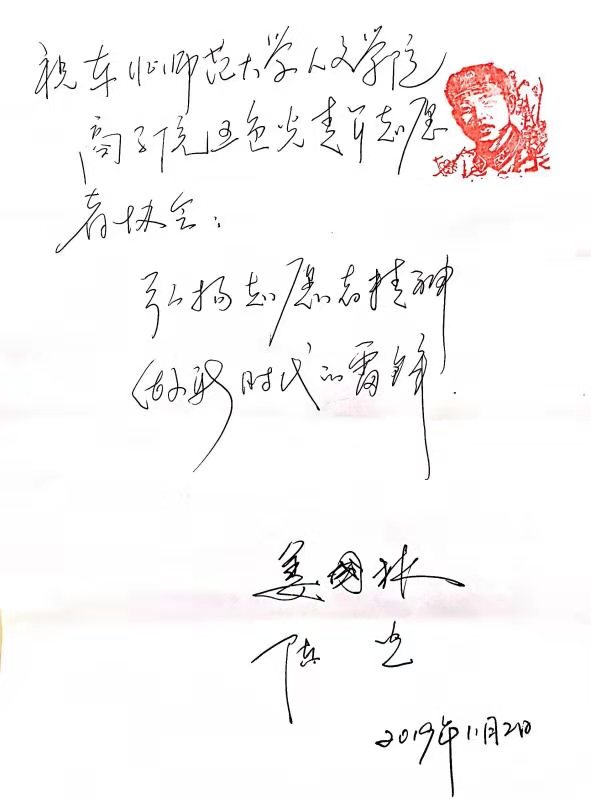 祝东北师范大学人文学院
商学院五色光青年志愿
者协会：
弘扬志愿者精神
做新时代的雷锋.
姜国林
陆光
2019年11月2日